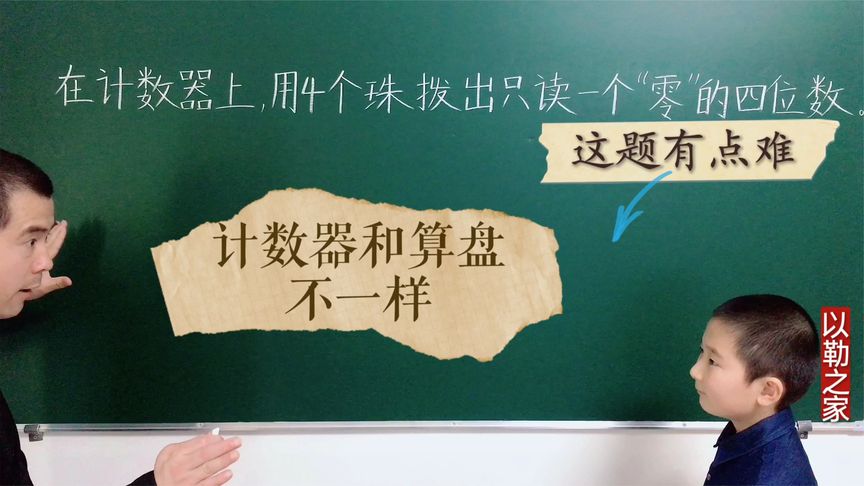 在计数器上,用4个珠拨出只读一个“零”的四位数。
这题有点难
计数器和算盘
不一样
以勒之家